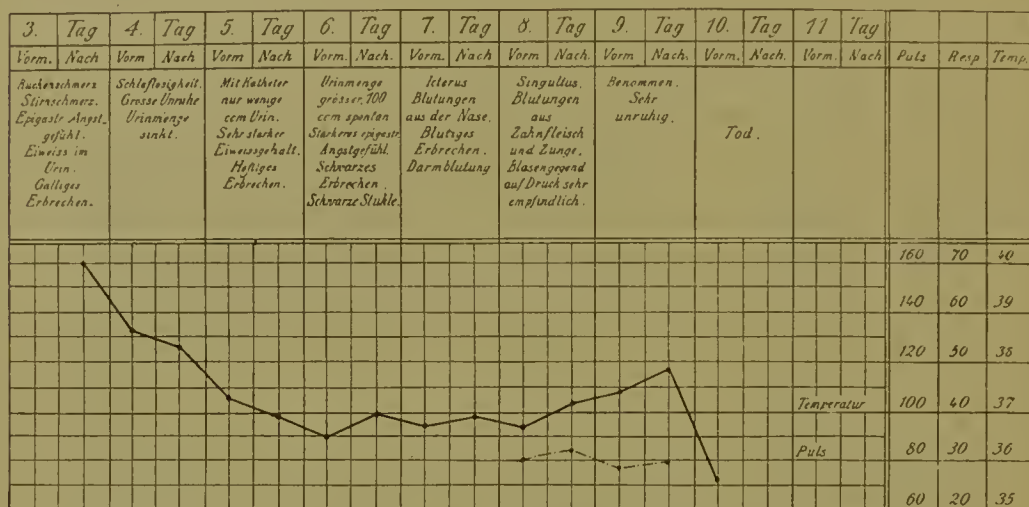 3. Tag 4. Tag 5. Tag 6. Tag 7. Tag 8. Tag 9. Tag 10. Tag 11 Tag
Vorm. Nach Vorm Nach Vorm Nach Vorm. Nach. Vorm Nach Vorm Nach. Vorm Nach. Vorm. Nach. Vorm. Nach Puls Resp Temp.
Ruckenschmerz
Stirnschmerz.
Epigastr Angst_
gefühl.
Eiweiss im
Urin.
Galliges
Erbrechen.
Schlaflosigkeit.
Grosse Unruhe
Urinmenge
sinkt.
Mit Katheter
nur wenige
ccm Urin.
Sehr starker
Eiweissgehalt.
Heftiges
Erbrechen.
Urinmenge
grösser, 100
ccm spontan
Starkeres epigastr.
Angstgefühl.
Schwarzes
Erbrechen.
Schwarze Stühle.
Icterus
Blutungen
aus der Nase.
Blutiges
Erbrechen.
Darmblutung
Singultus.
Blutungen
aus
Zahnfleisch
und Zunge.
Blasengegend
auf Druck sehr
empfindlich.
Benommen.
Sehr
unruhig.
Tod.
160 70 40
140 60 39
120 50 38
Temperatur 100 40 37
Puls 80 30 36
60 20 35